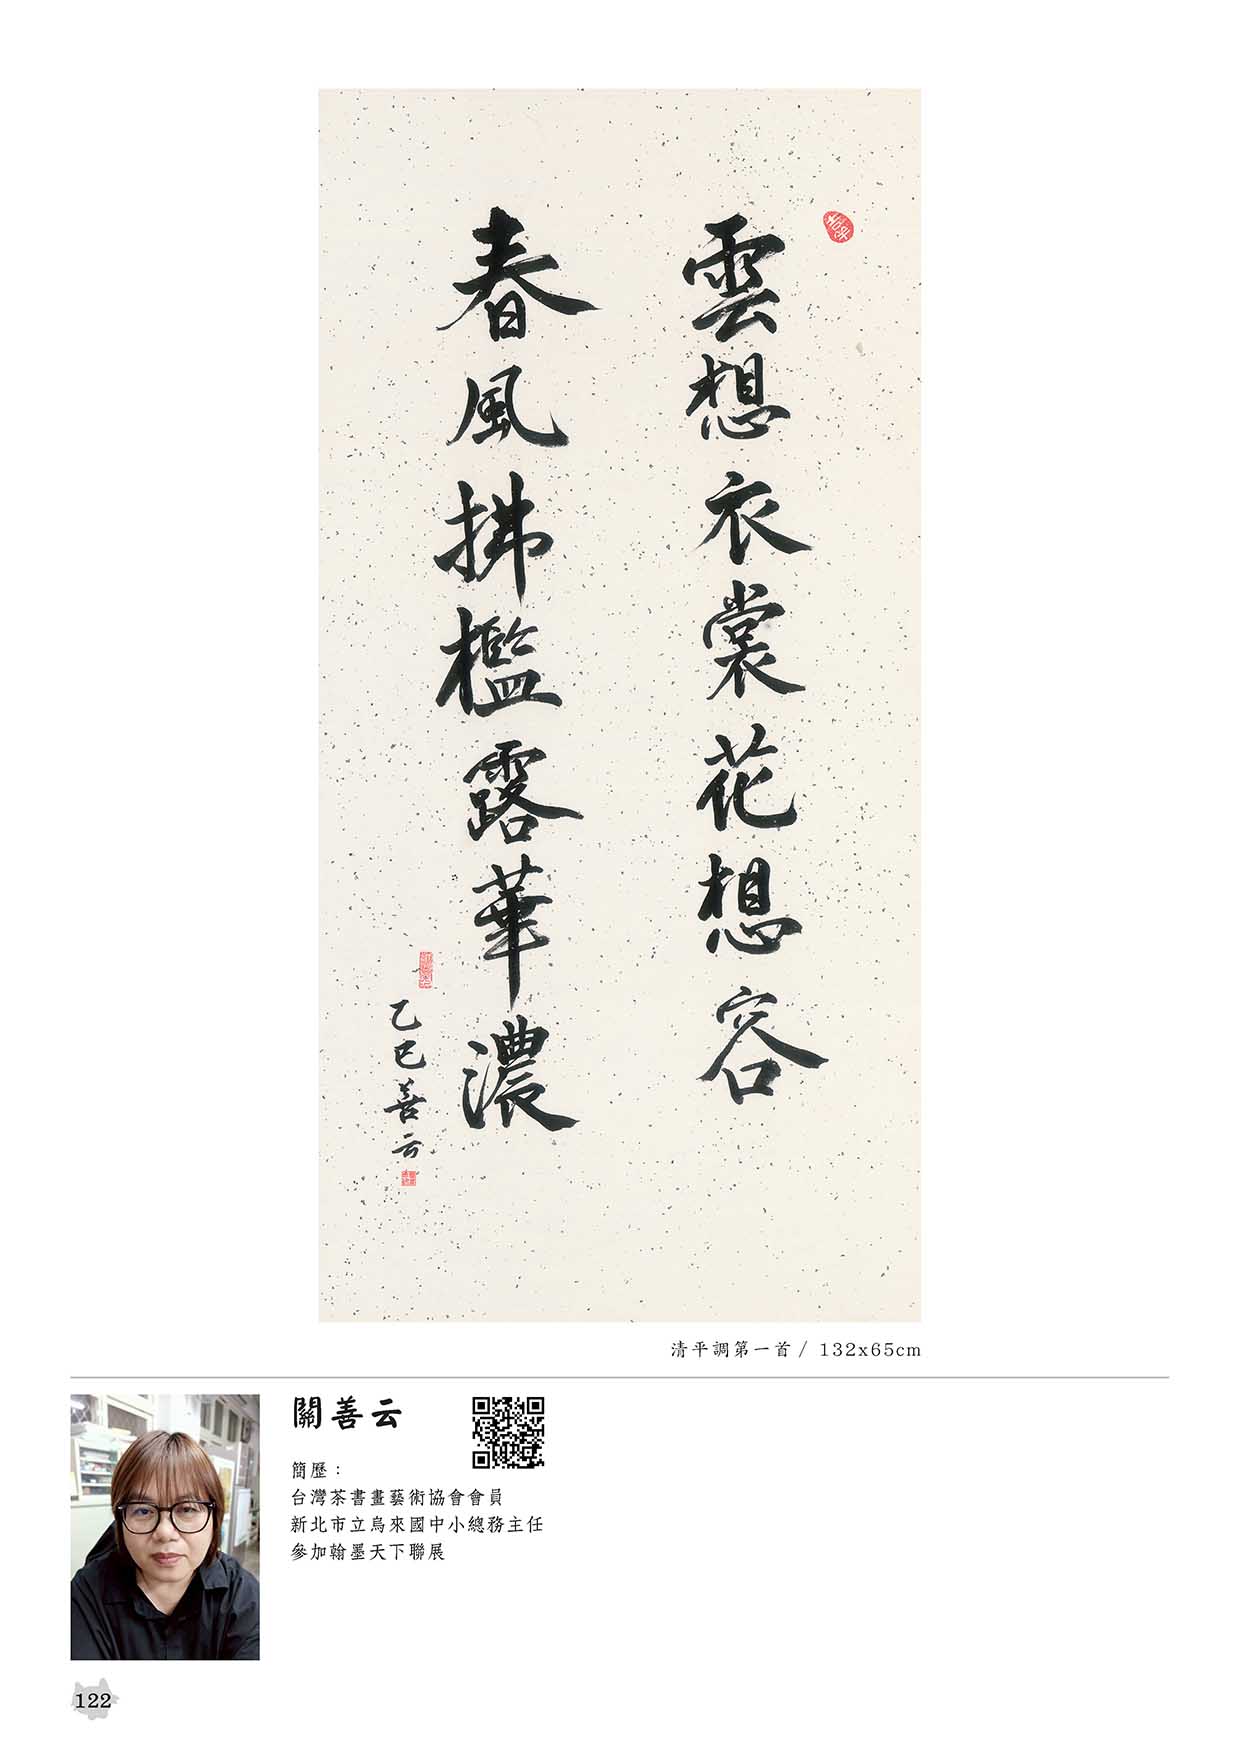 雲想衣裳花想容
春風拂檻露華濃
乙巳善云
清平調第一首 / 132x65cm
關善云
簡歷：
台灣茶書畫藝術協會會員
新北市立烏來國中小總務主任
參加翰墨天下聯展
122